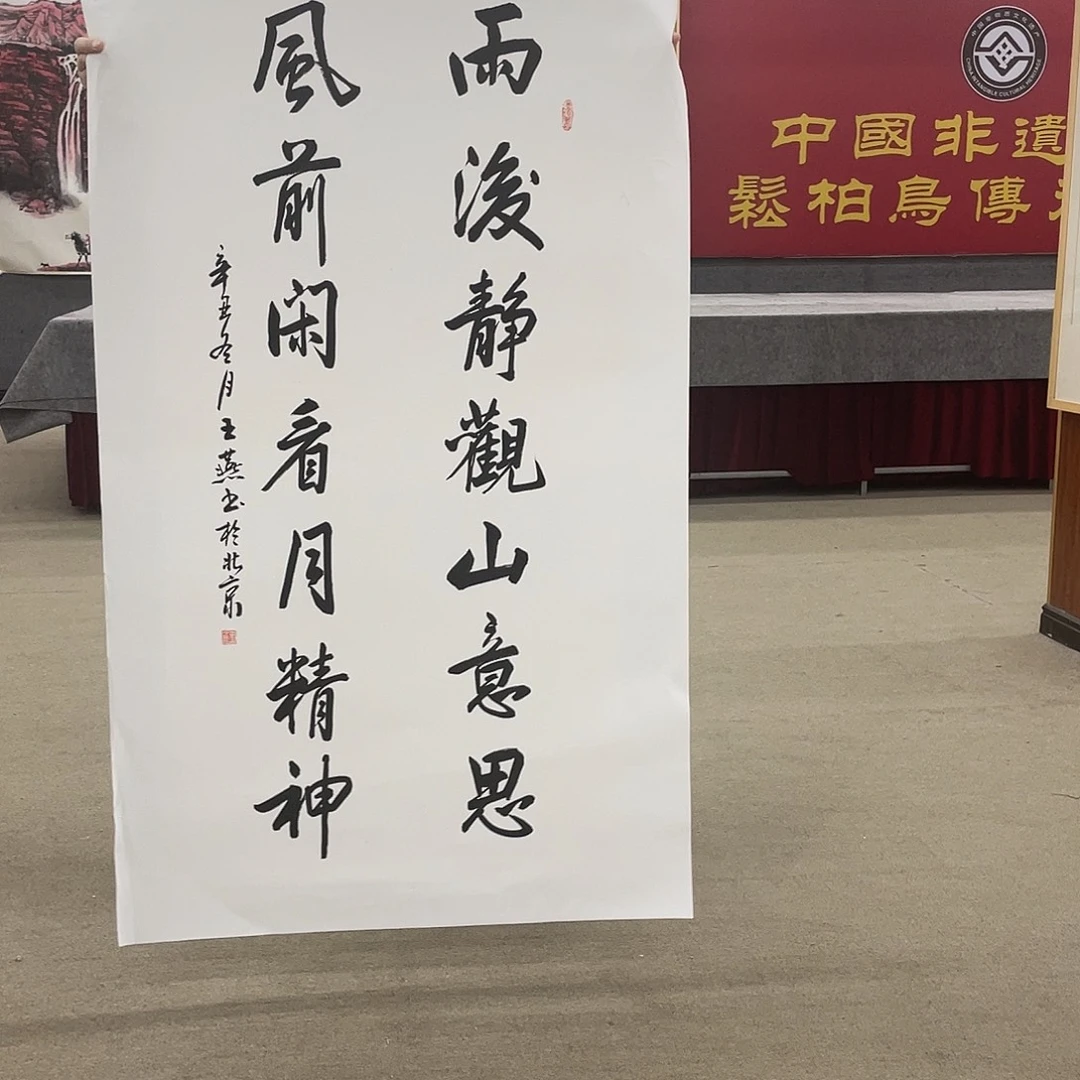 雨後靜觀山意思
風前闲看月精神
辛丑冬月王燕书於北京
中國非遺
鬆柏鳥傳
中国非物质文化遗产
CHINA INTANGIBLE CULTURAL HERITAGE